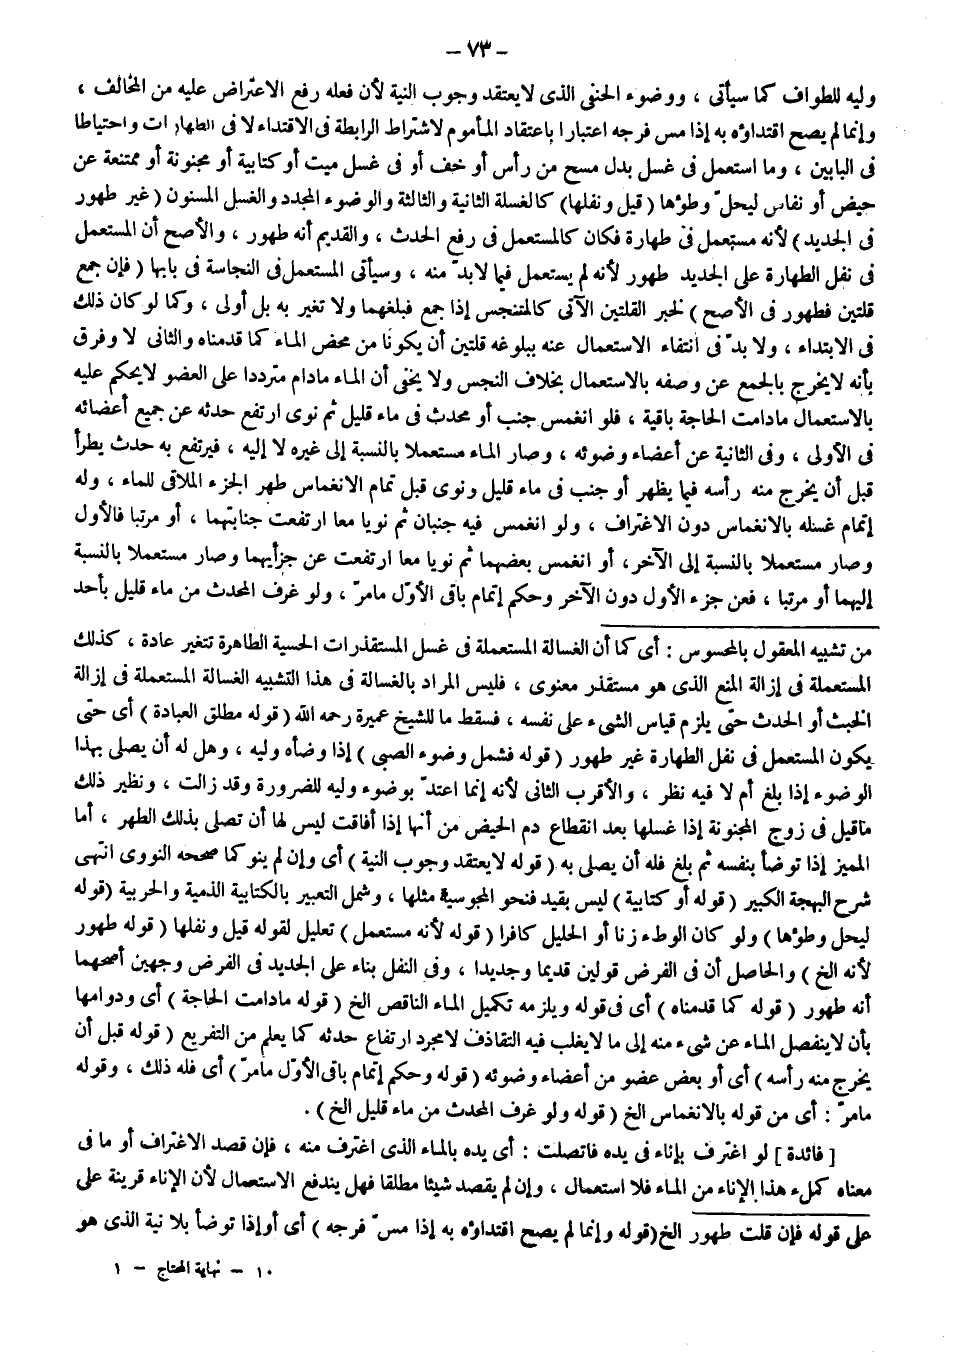 – ٧٣ –
وليه للطواف كما سيأتى ، ووضوء الحنفى الذى لايعتقد وجوب النية لأن فعله رفع الاعتراض عليه من المخالف ،
وإنما لم يصح اقتداؤه به إذا مس فرجه اعتبارا باعتقاد المأموم لاشتراط الرابطة فى الاقتداء لا فى الطهارات واحتياطا
فى البابين ، وما استعمل فى غسل بدل مسح من رأس أو خف أو فى غسل ميت أو كتابية أو مجنونة أو ممتنعة عن
حيض أو نفاس ليحل وطؤها ( قيل ونفلها) كالغسلة الثانية والثالثة والوضوء المجدد والغسل المسنون ( غير طهور
فى الجديد ) لأنه مستعمل فى طهارة فكان كالمستعمل فى رفع الحدث ، والقديم أنه طهور ، والأصح أن المستعمل
فى نفل الطهارة على الجديد طهور لأنه لم يستعمل فيما لابدّ منه ، وسيأتى المستعمل فى النجاسة فى بابها ( فإن جمع
قلتين فطهور فى الأصح ) لخبر القلتين الآتى كالمتنجس إذا جمع فبلغهما ولا تغير به بل أولى ، وكما لو كان ذلك
فى الابتداء ، ولا بدّ فى انتفاء الاستعمال عنه ببلوغه قلتين أن يكونا من محض الماء كما قدمناه والثانى لا وفرق
بأنه لايخرج بالجمع عن وصفه بالاستعمال بخلاف النجس ولا يخفى أن الماء مادام مترددا على العضو لايحكم عليه
بالاستعمال مادامت الحاجة باقية ، فلو انغمس جنب أو محدث فى ماء قليل ثم نوى ارتفع حدثه عن جميع أعضائه
فى الأولى ، وفى الثانية عن أعضاء وضوئه ، وصار الماء مستعملا بالنسبة إلى غيره لا إليه ، فيرتفع به حدث يطرأ
قبل أن يخرج منه رأسه فيما يظهر أو جنب فى ماء قليل ونوى قبل تمام الانغماس طهر الجزء الملاقى للماء ، وله
إتمام غسله بالانغماس دون الاغتراف ، ولو انغمس فيه جنبان ثم نويا معا ارتفعت جنابتهما ، أو مرتبا فالأول
وصار مستعملا بالنسبة إلى الآخر، أو انغمس بعضهما ثم نويا معا ارتفعت عن جزأيهما وصار مستعملا بالنسبة
إليهما أو مرتبا ، فعن جزء الأول دون الآخر وحكم إتمام باقى الأوّل مامرّ ، ولو غرف المحدث من ماء قليل بأحد
من تشبيه المعقول بالمحسوس : أى كما أن الغسالة المستعملة فى غسل المستقذرات الحسية الطاهرة تتغير عادة ، كذلك
المستعملة فى إزالة المنع الذى هو مستقذر معنوى ، فليس المراد بالغسالة فى هذا التشبيه الغسالة المستعملة فى إزالة
الخبث أو الحدث حتى يلزم قياس الشىء على نفسه ، فسقط ما للشيخ عميرة رحمه الله ( قوله مطلق العبادة ) أى حتى
يكون المستعمل فى نفل الطهارة غير طهور ( قوله فشمل وضوء الصبى ) إذا وضأه وليه ، وهل له أن يصلى بهذا
الوضوء إذا بلغ أم لا فيه نظر ، والأقرب الثانى لأنه إنما اعتدّ بوضوء وليه للضرورة وقد زالت ، ونظير ذلك
ماقيل فى زوج المجنونة إذا غسلها بعد انقطاع دم الحيض من أنها إذا أفاقت ليس لها أن تصلى بذلك الطهر ، أما
المميز إذا توضأ بنفسه ثم بلغ فله أن يصلى به ( قوله لايعتقد وجوب النية ) أى وإن لم ينو كما صححه النووى انتهى
شرح البهجة الكبير ( قوله أو كتابية ) ليس بقيد فنحو المجوسية مثلها ، وشمل التعبير بالكتابية الذمية والحربية (قوله
ليحل وطؤها ) ولو كان الوطء زنا أو الحليل كافرا ( قوله لأنه مستعمل ) تعليل لقوله قيل ونفلها ( قوله طهور
لأنه الخ ) والحاصل أن فى الفرض قولين قديما وجديدا ، وفى النفل بناء على الجديد فى الفرض وجهين أصحهما
أنه طهور ( قوله كما قدمناه ) أى فى قوله ويلزمه تكميل الماء الناقص الخ ( قوله مادامت الحاجة ) أى ودوامها
بأن لاينفصل الماء عن شىء منه إلى ما لايغلب فيه التقاذف لامجرد ارتفاع حدثه كما يعلم من التفريع ( قوله قبل أن
يخرج منه رأسه ) أى أو بعض عضو من أعضاء وضوئه ( قوله وحكم إتمام باقى الأوّل مامرّ ) أى فله ذلك ، وقوله
مامرّ : أى من قوله بالانغماس الخ ( قوله ولو غرف المحدث من ماء قليل الخ ) .
[ فائدة ] لو اغترف بإناء فى يده فاتصلت : أى يده بالماء الذى اغترف منه ، فإن قصد الاغتراف أو ما فى
معناه كملء هذا الإناء من الماء فلا استعمال ، وإن لم يقصد شيئا مطلقا فهل يندفع الاستعمال لأن الإناء قرينة على
على قوله فإن قلت طهور الخ(قوله وإنما لم يصح اقتداؤه به إذا مسّ فرجه ) أى أوإذا توضأ بلا نية الذى هو
١٠ – نهاية المحتاج – ١